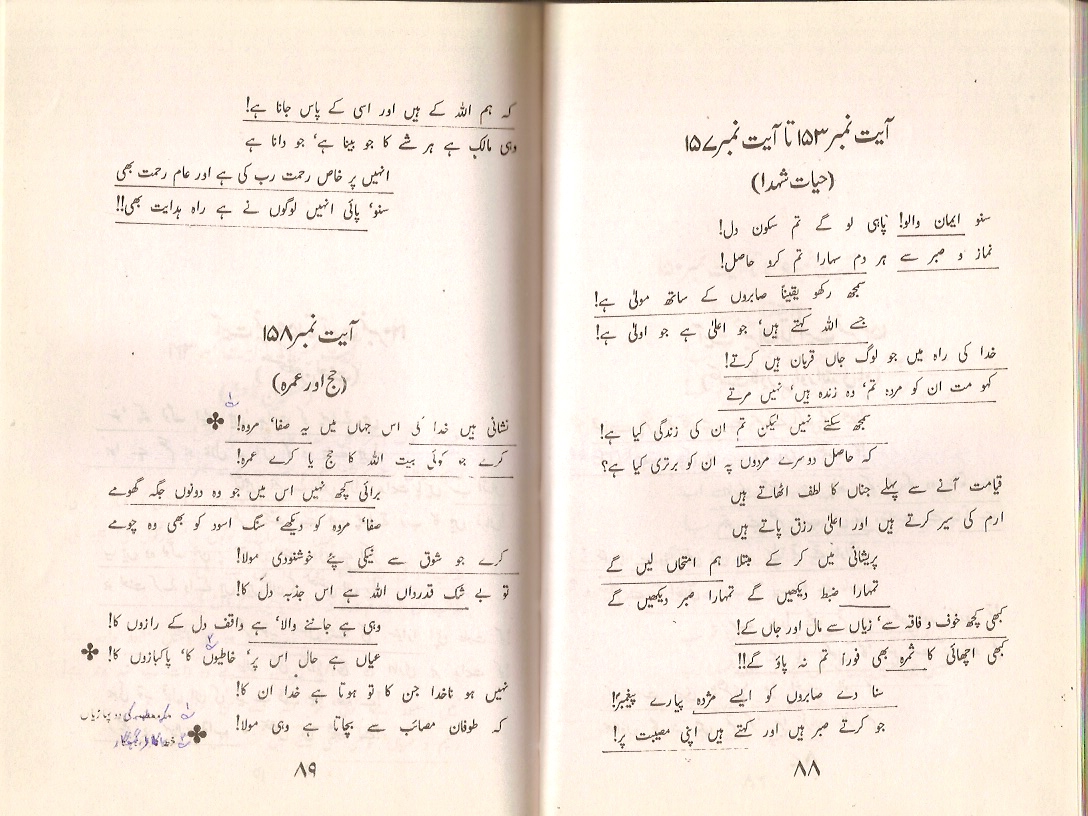 آیت نمبر ۱۵۳ تا آیت نمبر ۱۵۷
(حیات شہدا)
سنو ایمان والو! پاہی لو گے تم سکون دل!
نماز و صبر سے ہر دم سہارا تم کرو حاصل!
سمجھ رکھو یقیناً صابروں کے ساتھ مولیٰ ہے!
جسے اللہ کہتے ہیں‘ جو اعلیٰ ہے جو اولیٰ ہے!
خدا کی راہ میں جو لوگ جاں قرباں ہیں کرتے!
کہو مت ان کو مردہ تم‘ وہ زندہ ہیں‘ نہیں مرتے
سمجھ سکتے نہیں لیکن تم ان کی زندگی کیا ہے!
کہ حاصل دوسرے مردوں پہ ان کو برتری کیا ہے؟
قیامت آنے سے پہلے جناں کا لطف اٹھاتے ہیں
ارم کی سیر کرتے ہیں اور اعلیٰ رزق پاتے ہیں
پریشانی میں کر کے مبتلا ہم امتحاں لیں گے
تمہارا ضبط دیکھیں گے تمہارا صبر دیکھیں گے
کبھی کچھ خوف و فاقہ سے‘ زیاں سے مال اور جاں کے!
کبھی اچھائی کا ثمرہ بھی فوراً تم نہ پاؤ گے!!
سنا دے صابروں کو ایسے مژدہ پیارے پیغمبرؐ!
جو کرتے صبر ہیں اور کہتے ہیں اپنی مصیبت پر!
۸۸
کہ ہم اللہ کے ہیں اور اسی کے پاس جانا ہے!
وہی مالک ہے ہر شے کا جو بینا ہے‘ جو دانا ہے
انہیں پر خاص رحمت رب کی ہے اور عام رحمت بھی
سنو‘ پائی انہیں لوگوں نے ہے راہ ہدایت بھی!!
آیت نمبر ۱۵۸
(حج اور عمرہ)
نشانی ہیں خدا کی اس جہاں میں یہ صفا‘ مروہ!
کرے جو کوئی بیت اللہ کا حج یا کرے عمرہ!
برائی کچھ نہیں اس میں جو وہ دونوں جگہ گھومے
صفا‘ مروہ کو دیکھے‘ سنگ اسود کو بھی وہ چومے
کرے جو شوق سے نیکی پئے خوشنودی مولا!
تو بے شک قدرداں اللہ ہے اس جذبہ دل کا!
وہی ہے جاننے والا‘ ہے واقف دل کے رازوں کا!
عیاں ہے حال اس پر‘ خاطیوں کا‘ پاکبازوں کا!
نہیں ہو ناخدا جن کا تو ہوتا ہے خدا ان کا!
کہ طوفان مصائب سے بچاتا ہے وہی مولا!
۱ مکہ معظمہ کی دو پہاڑیاں
۲ خطاکار، گنہگار
۸۹